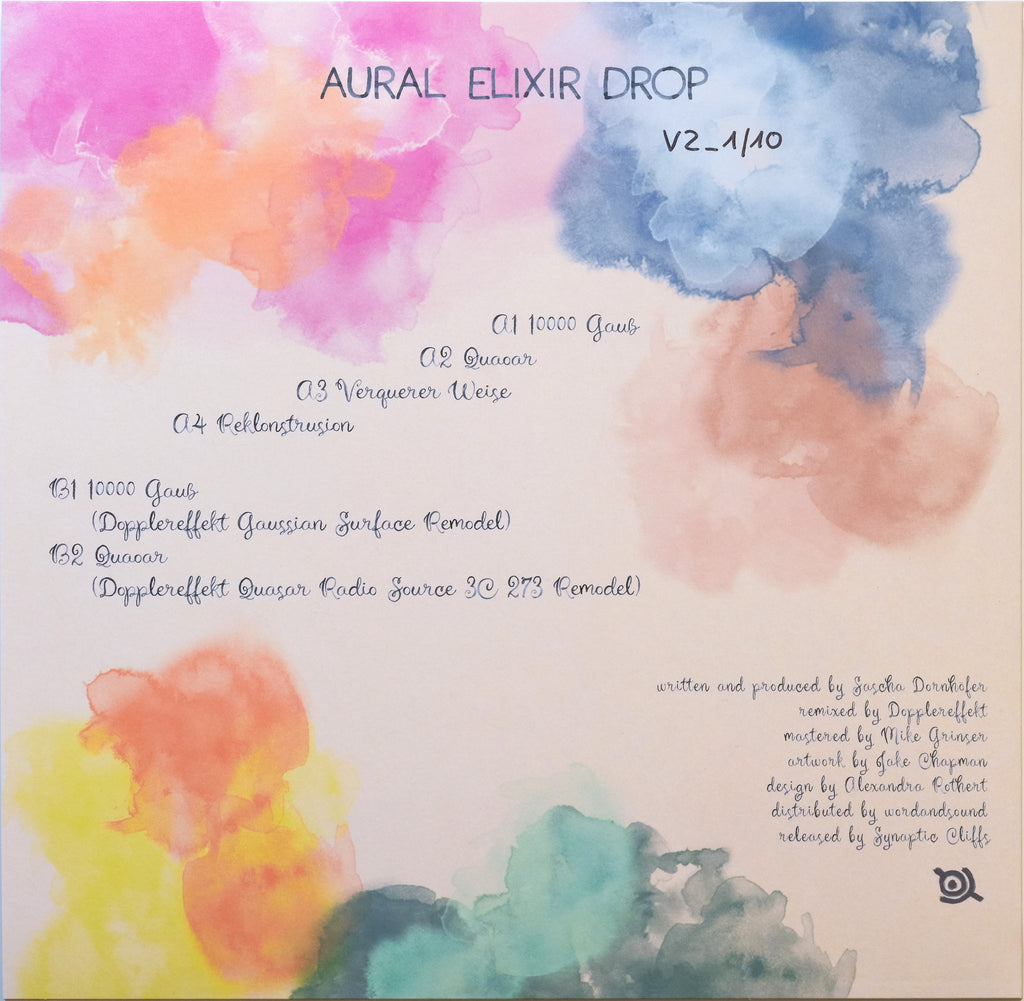 AURAL ELIXIR DROP
V2_1/10
A1 10000 Gauß
A2 Quaoar
A3 Verquerer Weise
A4 Reklonstrusion
B1 10000 Gauß
(Dopplereffekt Gaussian Surface Remodel)
B2 Quaoar
(Dopplereffekt Quasar Radio Source 3C 273 Remodel)
written and produced by Sascha Dornhöfer
remixed by Dopplereffekt
mastered by Mike Grinser
artwork by Jake Chapman
design by Alexandra Rothert
distributed by wordandsound
released by Synaptic Cliffs